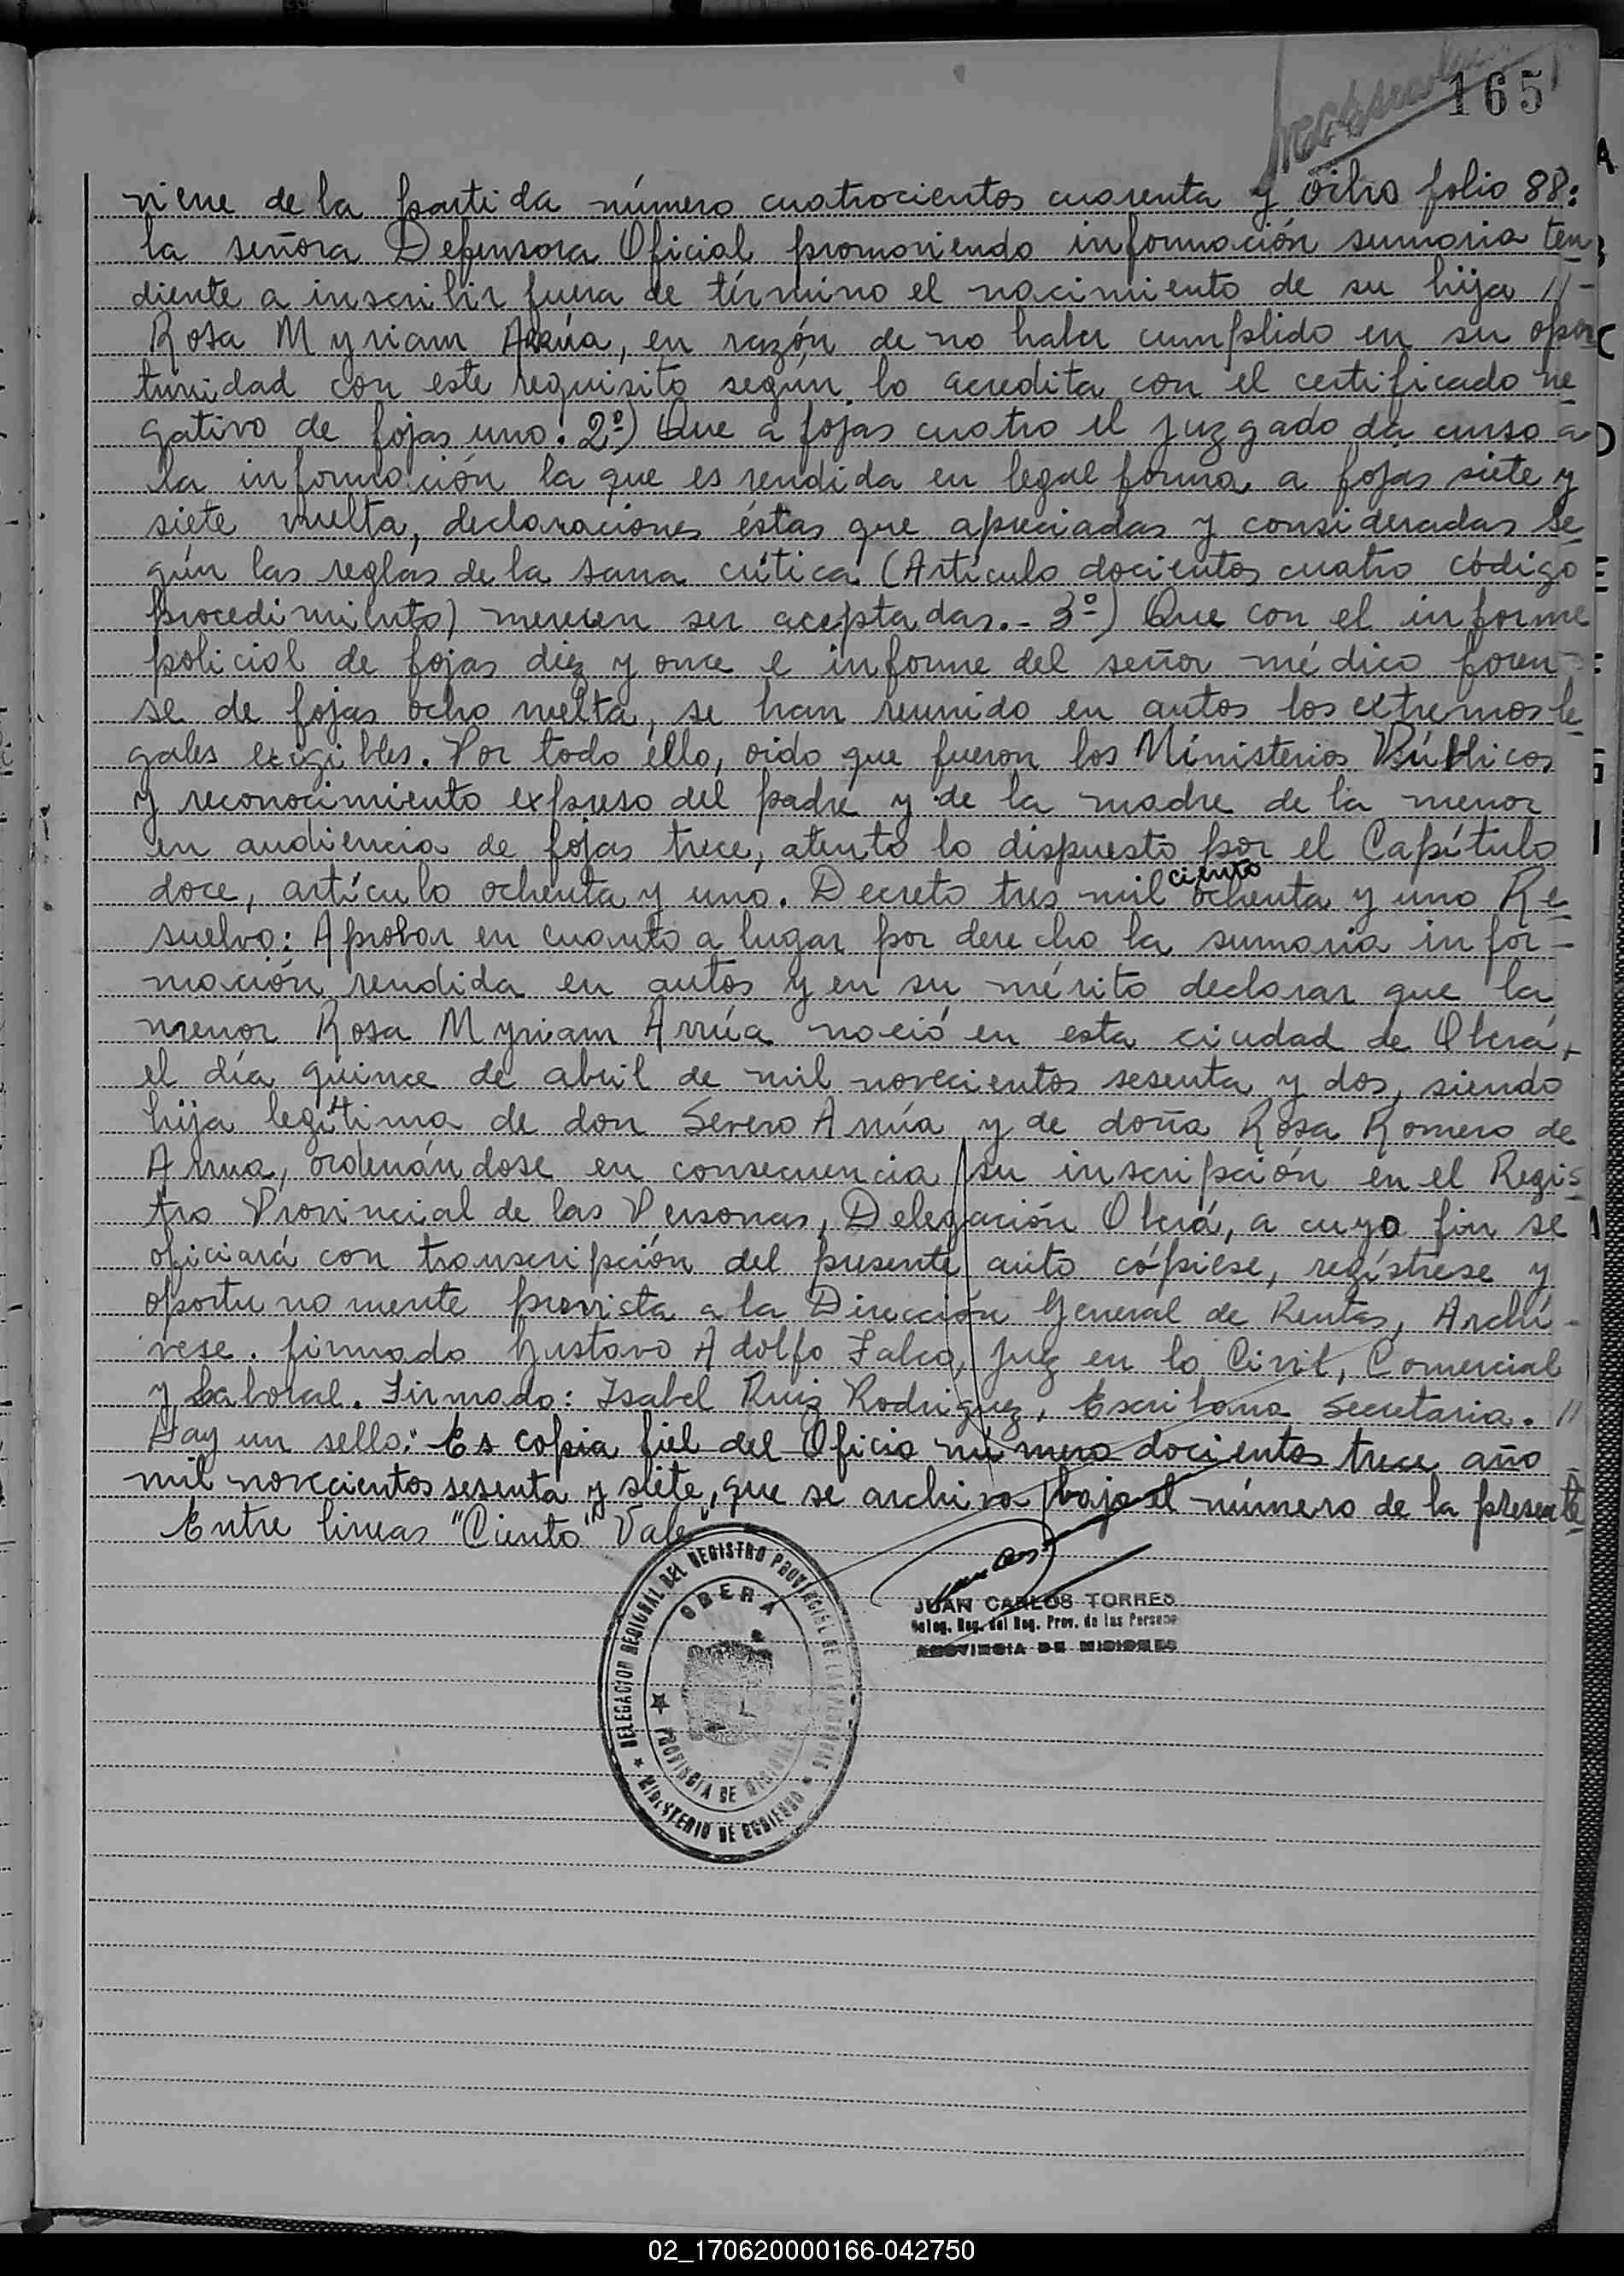 165
viene de la partida número cuatrocientos cuarenta y ocho folio 88:
la señora Defensora Oficial promoviendo información sumaria ten
diente a inscribir fuera de término el nacimiento de su hija //-
Rosa Myriam Arrúa, en razón de no haber cumplido en su opor
tunidad con este requisito según lo acredita con el certificado ne
gativo de fojas uno. 2º) Que a fojas cuatro el juzgado da curso a
la información la que es rendida en legal forma a fojas siete y
siete vuelta, declaraciones éstas que apreciadas y consideradas se
gún las reglas de la sana crítica (Artículo docientos cuatro código
procedimiento) merecen ser aceptadas.- 3º) Que con el informe
policial de fojas diez y once e informe del señor médico foren-
se de fojas ocho vuelta, se han reunido en autos los extremos le
gales exigibles. Por todo ello, oido que fueron los Ministerios Públicos
y reconocimiento expreso del padre y de la madre de la menor
en audiencia de fojas trece, atento lo dispuesto por el Capítulo
doce, artículo ochenta y uno. Decreto tres mil ciento ochenta y uno Re
suelvo: Aprobar en cuanto a lugar por derecho la sumaria infor-
mación rendida en autos y en su mérito declarar que la
menor Rosa Myriam Arrúa nació en esta ciudad de Oberá,
el día quince de abril de mil novecientos sesenta y dos, siendo
hija legítima de don Severo Arrúa y de doña Rosa Romero de
Arrua, ordenándose en consecuencia su inscripción en el Regis
tro Provincial de las Personas, Delegación Oberá, a cuyo fin se
oficiará con transcripción del presente auto cópiese, regístrese y
oportunomente prevista a la Dirección General de Rentas, Archí-
vese. firmado Gustavo Adolfo Falco, Juez en lo Civil, Comercial
y Laboral. Firmado: Isabel Ruiz Rodriguez, Escribana Secretaria. //
Hay un sello: Es copia fiel del Oficio número docientos trece año
mil novecientos sesenta y siete, que se archiva bajo el número de la presente
Entre lineas "Ciento" Vale
DELEGACION REGIONAL DEL REGISTRO PROVINCIAL DE LAS PERSONAS
OBERA
PROVINCIA DE MISIONES
MINISTERIO DE GOBIERNO
JUAN CARLOS TORRES
Deleg. Reg. del Reg. Prov. de las Persona
PROVINCIA DE MISIONES
02_170620000166-042750